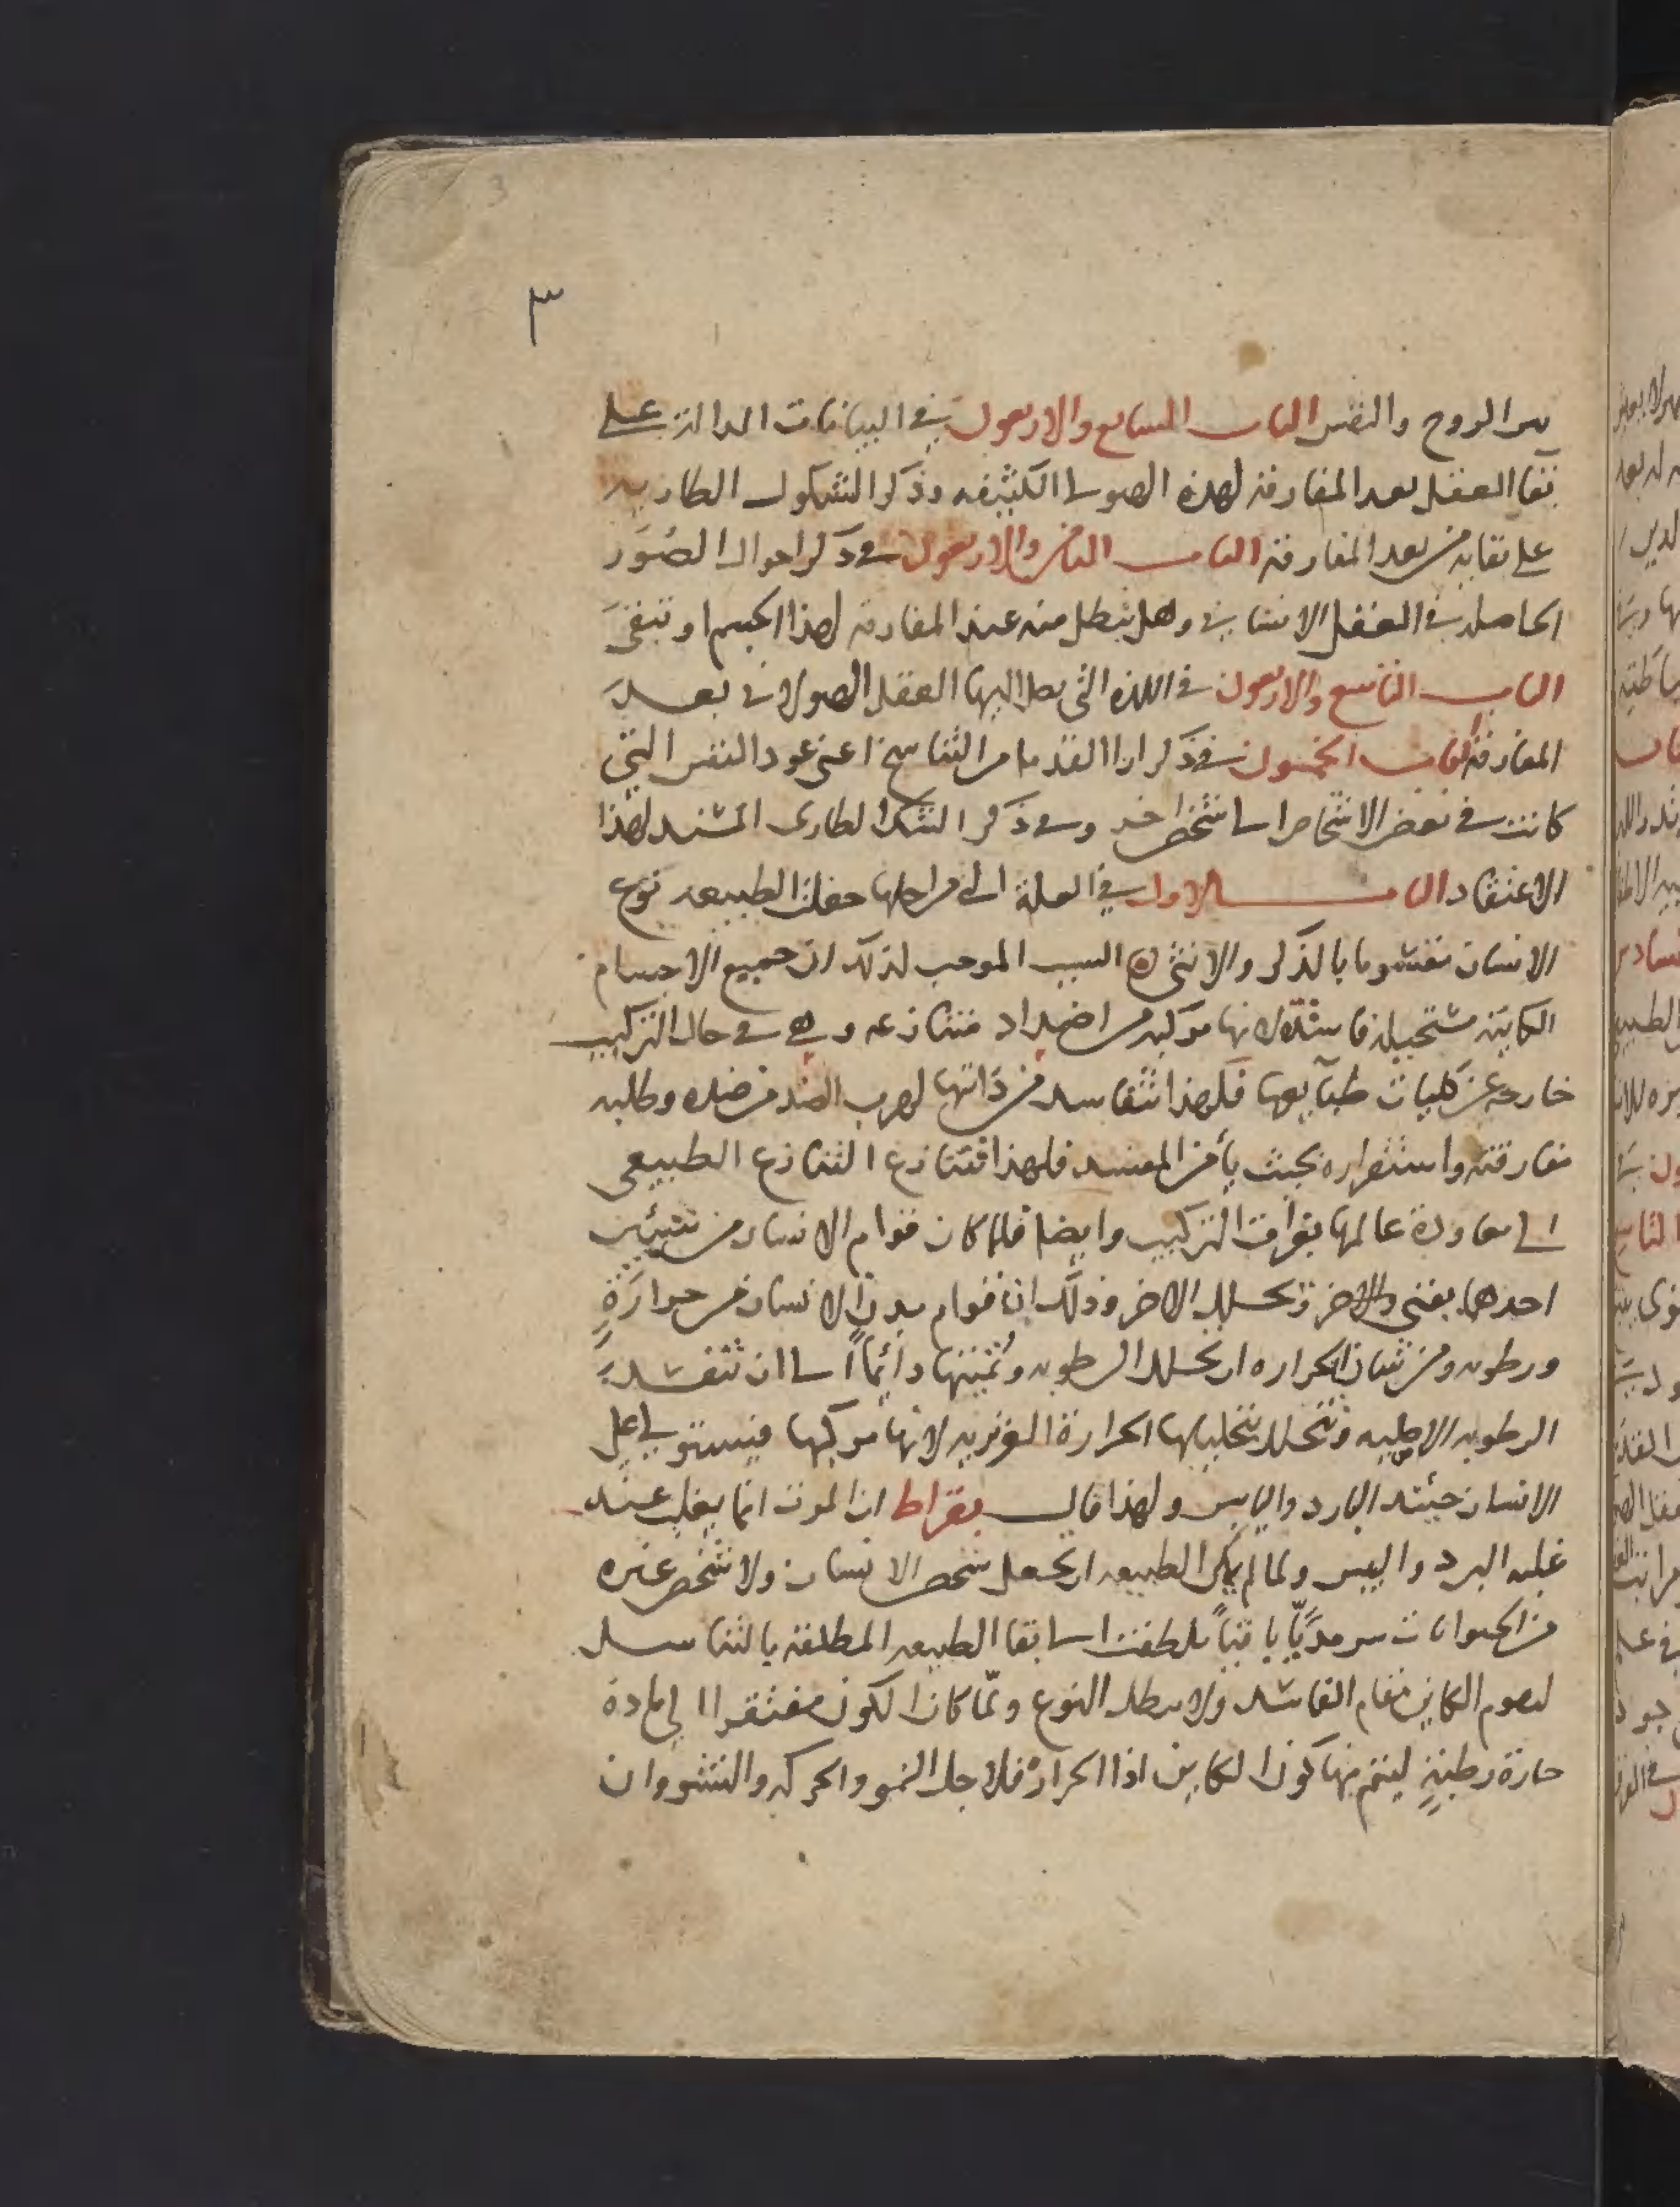 3
٣
بين الروح والنفس الباب السابع والاربعون في البيانات الدالة على
بقا العقل بعد المفارقة لهذه الهيولى الكثيفه وذكر الشكوك الطاريه
على بقايه من بعد المفارقة الباب الثامن والاربعون في ذكر احوال الصور
الحاصلة في العقل الانساني وهل تبطل منه عند المفارقه لهذا الجسم او تبقى
الباب التاسع والاربعون في اللذه التي يصل اليها العقل الهيولاني بعد
المفارقة الباب الخمسون في ذكر ارا القدما من التناسخ اعني عود النفس التي
كانت في بعض الاشخاص الى شخص اخر وفي ذكر الشك الطارى المفسد لهذا
الاعتقاد الباب الاول في العلة التي من اجلها جعلت الطبيعه نوع
الانسان مقسوما بالذكر والانثى السبب الموجب لذلك ان جميع الاجسام
الكاينه مستحيلة فاسدة لانها مركبه من اضداد متنازعه وهي في حال التركيب
خارجه عن كليات طبايعها فلهذا تتفاسد من ذاتها لهرب الضد من ضده وطلبه
مفارقته واستقراره بحيث يأمن المفسد فلهذا تتنازع التنازع الطبيعي
الى معاودة عالمها بفراق التركيب وايضا فلما كان قوام الانسان من شيئين
احدهما يفنى والاخر يحلل الاخر وذلك ان قوام بدن الانسان من حرارة
ورطوبه ومن شان الحراره ان تحلل الرطوبه وتفنيها دائما الى ان تنفد
الرطوبه الاصليه وتتحلل بتحليلها الحرارة الغريزيه لانها مركبها فيستولي على
الانسان حينئد البارد واليابس ولهذا قال بقراط ان الموت انما يغلب عند
غلبه البرد واليبس ولما لم يمكن الطبيعه ان تجعل شخص الانسان ولا شخص غيره
من الحيوانات سرمديا باقيا تلطفت الى بقا الطبيعه المطلقه بالتناسل
ليقوم الكاين مقام الفاسد ولا يبطل النوع ولما كان الكون مفتقرا الى مادة
حارة رطبة ليتم بها كون الكاين اذا الحرارة فلاجل النمو والحركه والنشو وان